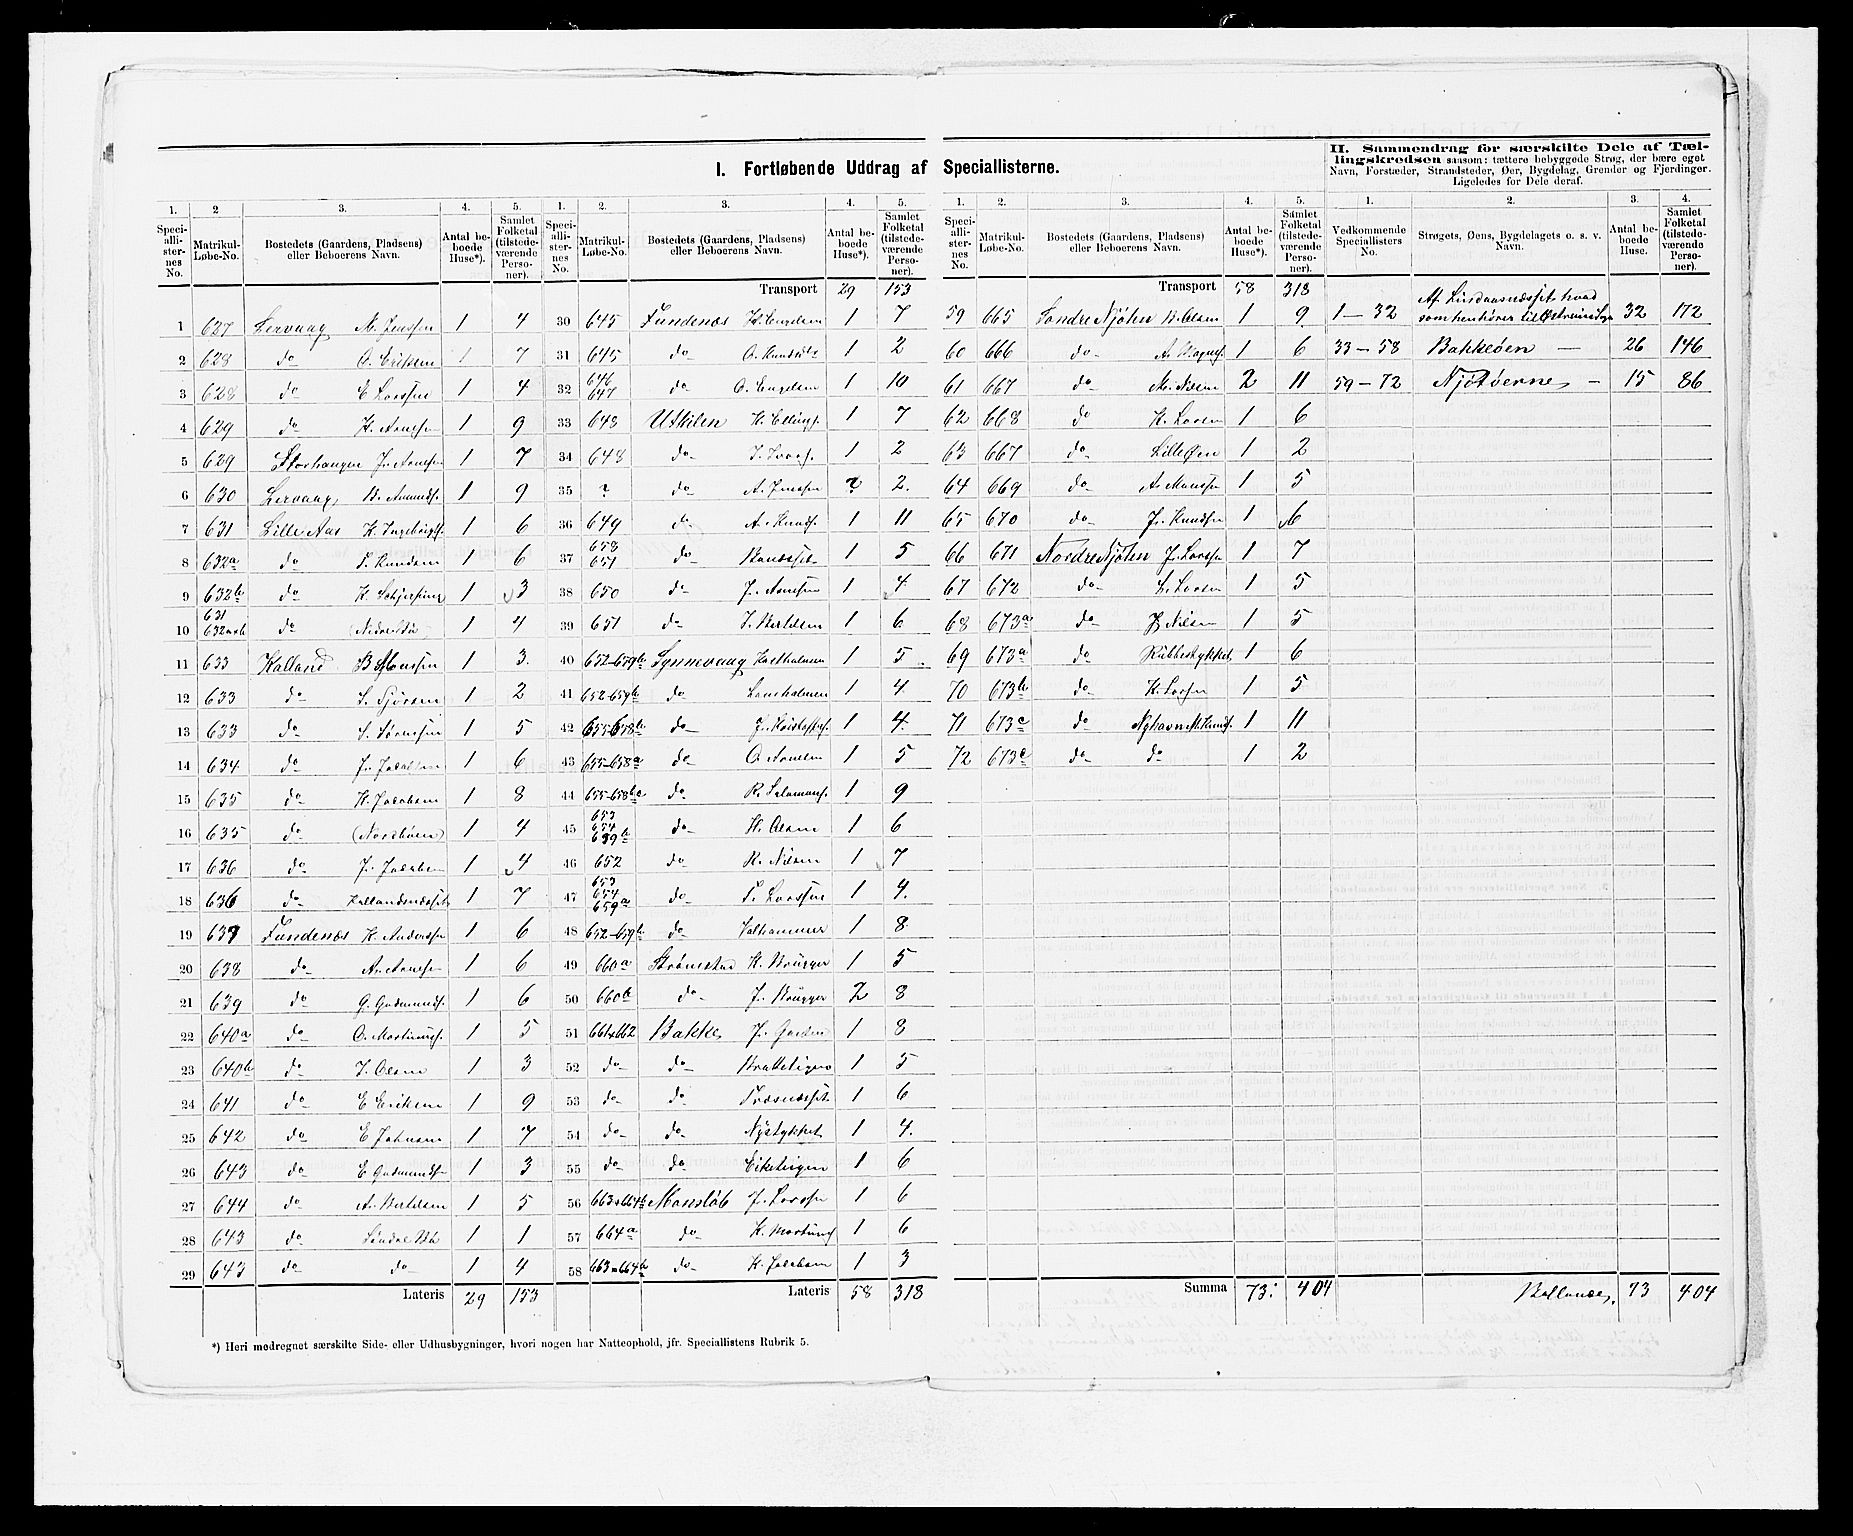 I. Fortløbende Uddrag af Speciallisterne.
II. Sammendrag for særskilte Dele af Tællingskredsen saasom: tættere bebyggede Strøg, der bære eget
Navn, Forstæder, Strandsteder, Øer, Bygdelag, Grender og Fjerdinger.
Ligeledes for Dele deraf.
1. 2 3. 4. 5. 1. 2. 3. 4. 5. 1. 2. 3. 4. 5. 1. 2. 3. 4.
Speciallisternes No. Matrikul-Løbe-No. Bostedets (Gaardens, Pladsens) eller Beboerens Navn. Antal beboede Huse*). Samlet Folketal (tilstedeværende Personer).
Speciallisternes No. Matrikul-Løbe-No. Bostedets (Gaardens, Pladsens) eller Beboerens Navn. Antal beboede Huse*). Samlet Folketal (tilstedeværende Personer).
Speciallisternes No. Matrikul-Løbe-No. Bostedets (Gaardens, Pladsens) eller Beboerens Navn. Antal beboede Huse*). Samlet Folketal (tilstedeværende Personer).
Vedkommende Speciallisters No. Strøgets, Øens, Bygdelagets o. s. v. Navn. Antal beboede Huse. Samlet Folketal (tilstedeværende Personer).
1 627 Lervaag M. Jenssen 1 4
2 628 do O. Eriksen 1 7
3 628 do E Larssen 1 4
4 629 do H. Arnesen 1 9
5 629 Storhaugen J. Arnesen 1 7
6 630 Lervaag B. Amunds. 1 9
7 631 Lille Aas K. Ingebrigts. 1 6
8 632a do Knudsen 1 6
9 632b do K. 1 3
10 631 632a+b do 1 4
11 633 Kalland B Monsen 1 3.
12 633 do 1 2
13 633 do S. Sørensen 1 5
14 634 do J. Jakobsen 1 6
15 635 do H. Jakobsen 1 8
16 635 do 1 4
17 636 do J. Jakobsen 1 4
18 636 do Kallandsnæsset 1 7
19 637 Fundenæs K. Anderssen 1 6
20 638 do A. Arnesen 1 6
21 639 do G. Gudmunds. 1 6
22 640a do O. Martinus. 1 5
23 640b do J. Olsen 1 3
24 641 do E Eriksen 1 9
25 642 do E Johnsen 1 7
26 643 do E Gudmundsen 1 3
27 644 do A. Bertelsen 1 5
28 643 do 1 1
29 643 do do 1 4
Lateris 29 153
Transport 29 153
30 645 Fundenæs K. Engelsen 1 7
31 645 do O. 1 2
32 646 647 do O. Engelsen 1 10
33 648 Utkilen H. Ellings. 1 7
34 648 do J. Ivars. 1 2
35 ? do A. Jenssen ? 2.
36 649 do A. Knuds. 1 11
37 658 651 do 1 5
38 650 do J. Arnesen 1 4
39 651 do J. Bertelsen 1 6
40 652-659b Synnevaag 1 5
41 652-659b do 1 4
42 655-658b do J. Kristoffers. 1 4.
43 655-658a do O Arnesen 1 5
44 655-658 do R. Salomons. 1 9
45 653 654 659b do H. Olsen 1 6
46 652 do R. Nilsen 1 7
47 653 654 659a do Larssen 1 4.
48 652-659b do Valhammer 1 8
49 660a Strømstad H. Brügger 1 5
50 660b do J. Brügger 2 8
51 661+662 Bakke J. 1 8
52 do do 1 5
53 do do Træsnæsset 1 6
54 do do Nystykket 1 4.
55 do do Eketeigen 1 6
56 663+664b Monsløb J. Larssen 1 6
57 664a do K. Martinus 1 6
58 663-664b do H. Jakobsen 1 3
Lateris 58 318
Transport 58 318
59 665 Søndre Njøten 1 9
60 666 do A. Magnes. 1 6
61 667 do M. Nilsen 2 11
62 668 do K. Larsen 1 6
63 667 do Lille Øen 1 2
64 669 do A. Monsen 1 5
65 670 do J. Knudsen 1 6
66 671 Nordre Njøten J. Larssen 1 7
67 672 do L. Larsen 1 5
68 673a do Nilsen 1 5
69 673a do Rubbestykket 1 6
70 673b do K. Larsen 1 5
71 673c do Nyhavn M. Knuds. 1 11
72 673c do do 1 2
Summa 73. 404
1 – 32 Af Lindaasnæsset hvad som henhører til 32 172
33 – 58 Bakkøen — 26 146
59 – 72 Njøtøerne – 15 86
73 404
*) Heri medregnet særskilte Side- eller Udhusbygninger, hvori nogen har Natteophold, jfr. Speciallistens Rubrik 5.